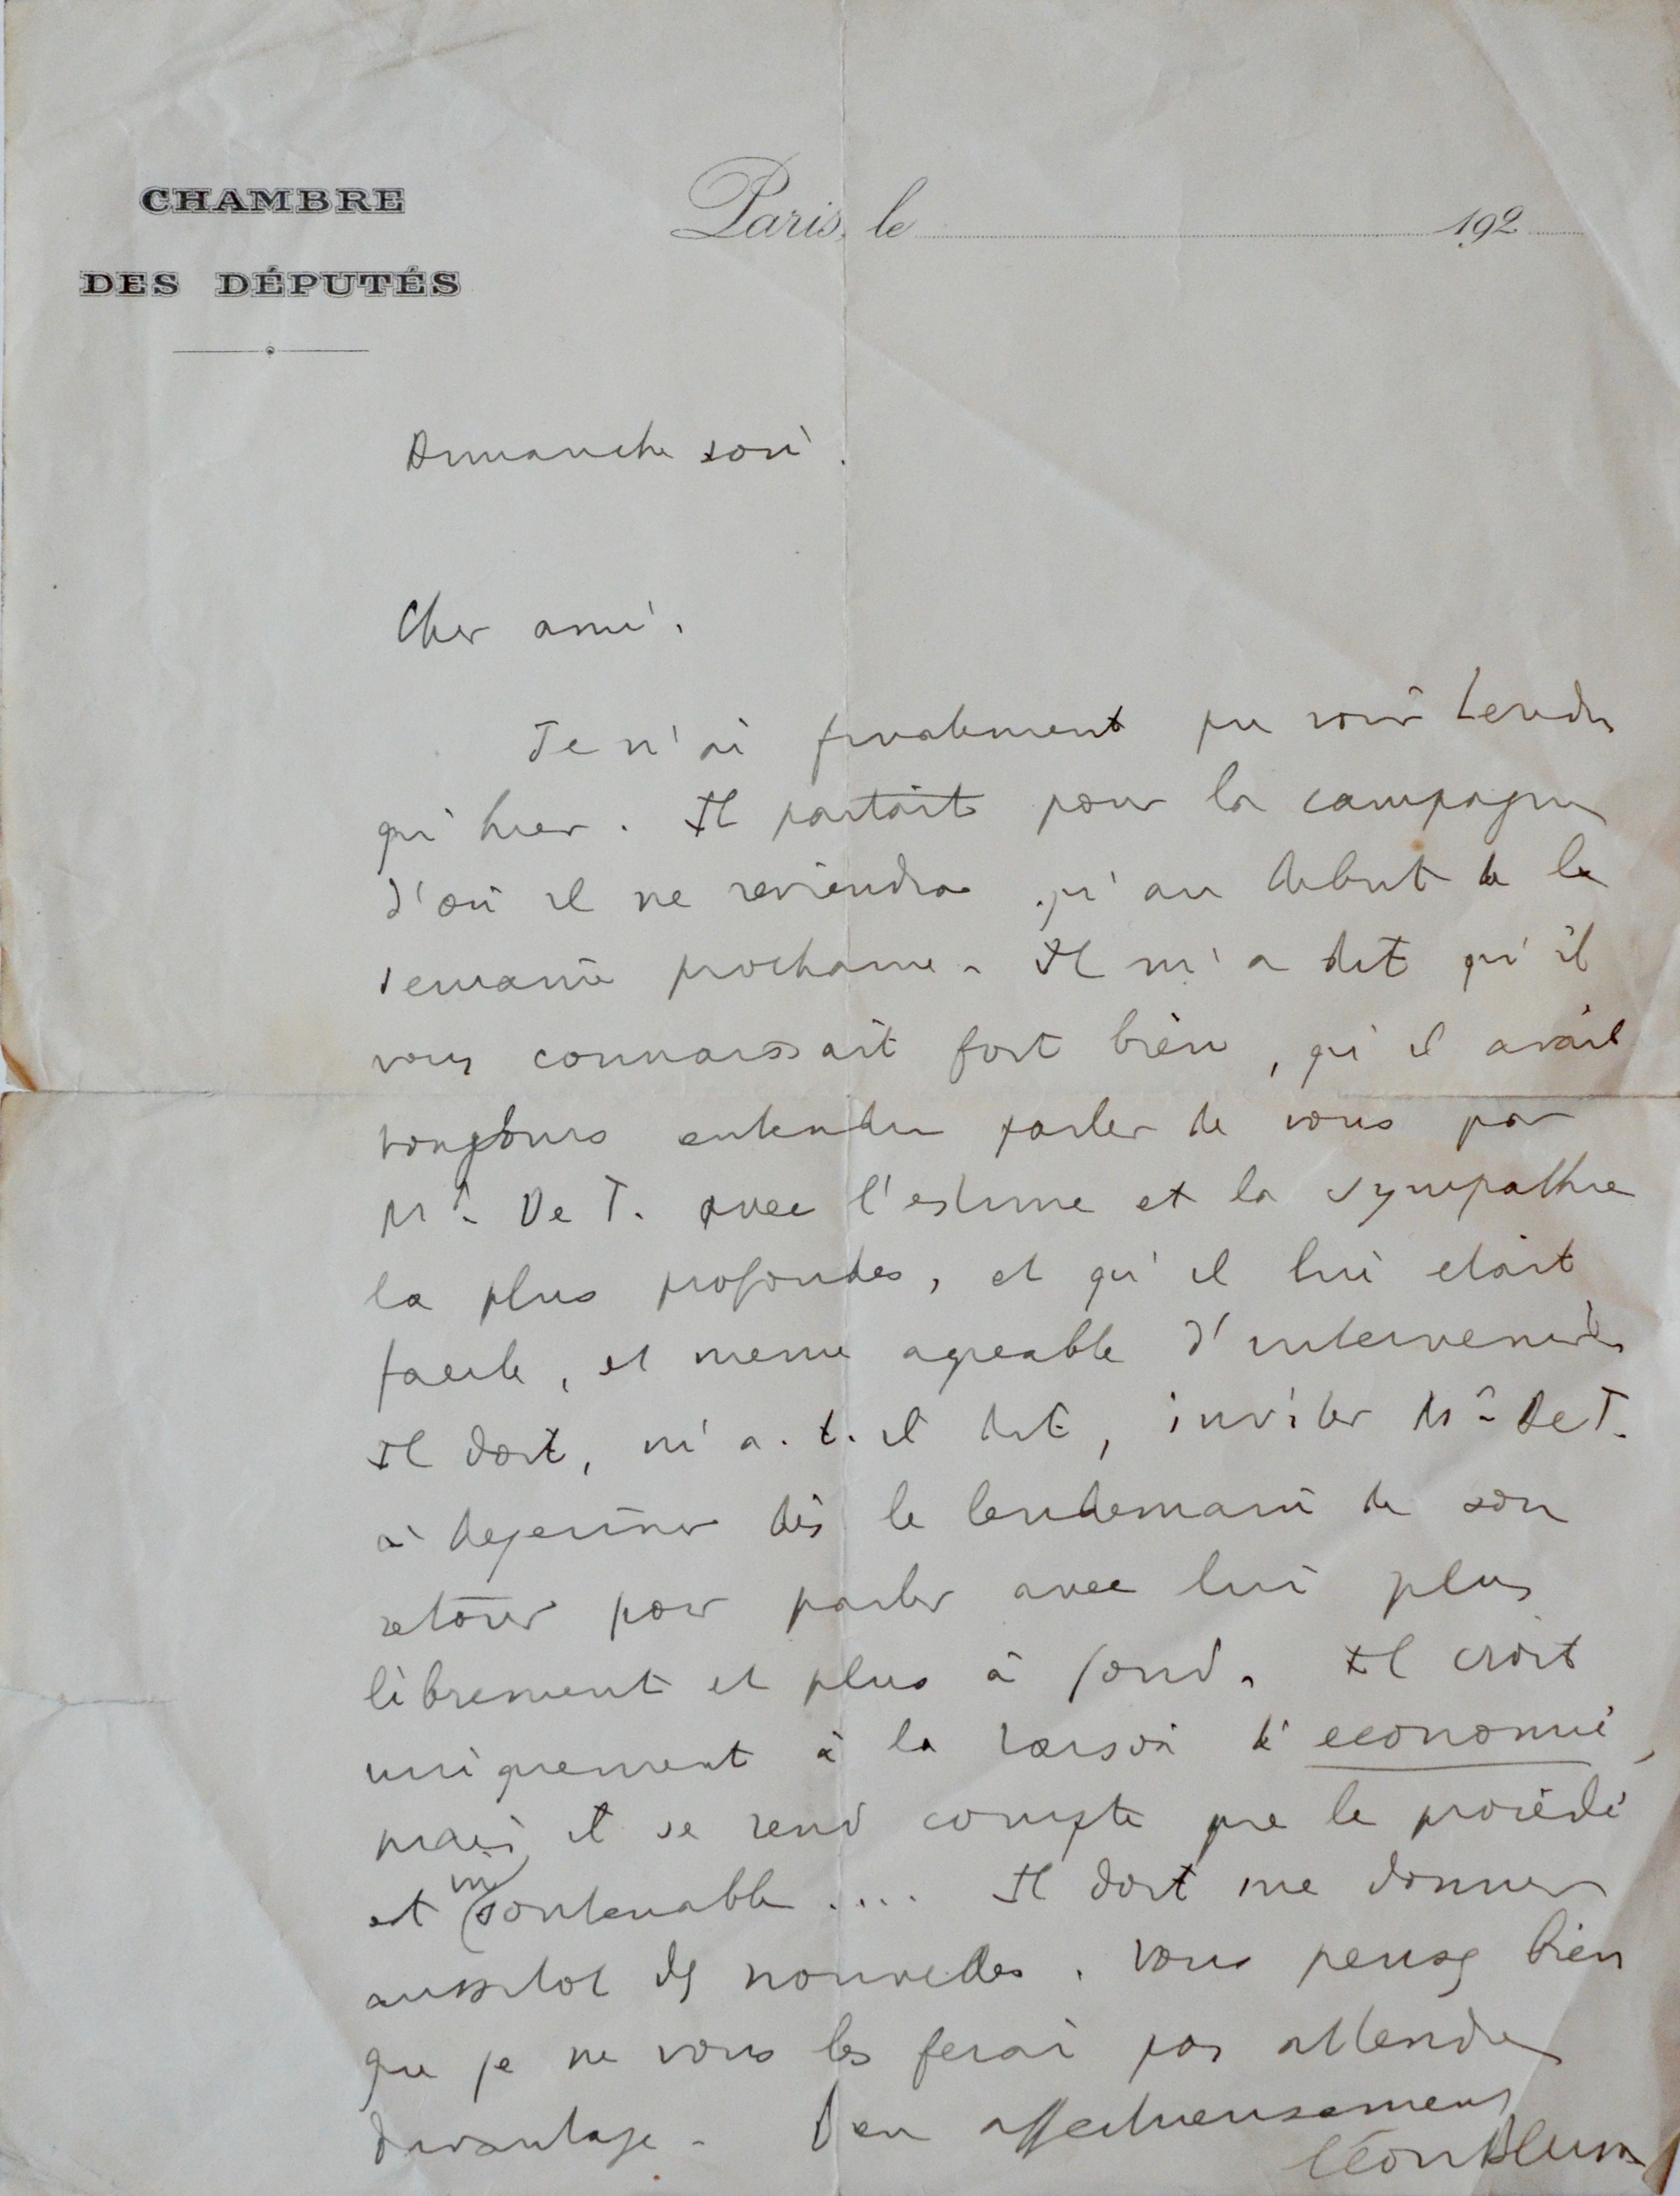 CHAMBRE
DES DÉPUTÉS
Paris, le 192
Dimanche soir.
Cher ami,
Je n'ai finalement pu voir
qu'hier. Il partait pour la campagne
d'où il ne reviendra qu'au debut de la
semaine prochaine. Il m'a dit qu'il
vous connaissait fort bien, qu'il avait
toujours entendu parler de vous par
Mr. De T. avec l'estime et la sympathie
la plus profondes, et qu'il lui etait
facile, et meme agreable d'intervenir.
Il doit, m'a-t-il dit, inviter Mr. De T.
à dejeuner dès le lendemain de son
retour pour parler avec lui plus
librement et plus à fond. Il croit
uniquement à la raison d'economie,
mais il se rend compte que le procédé
est insoutenable .... Il doit me donner
aussitot des nouvelles. Vous pensez bien
que je ne vous les ferai pas attendre
davantage. Bien affectueusement
Léon Blum